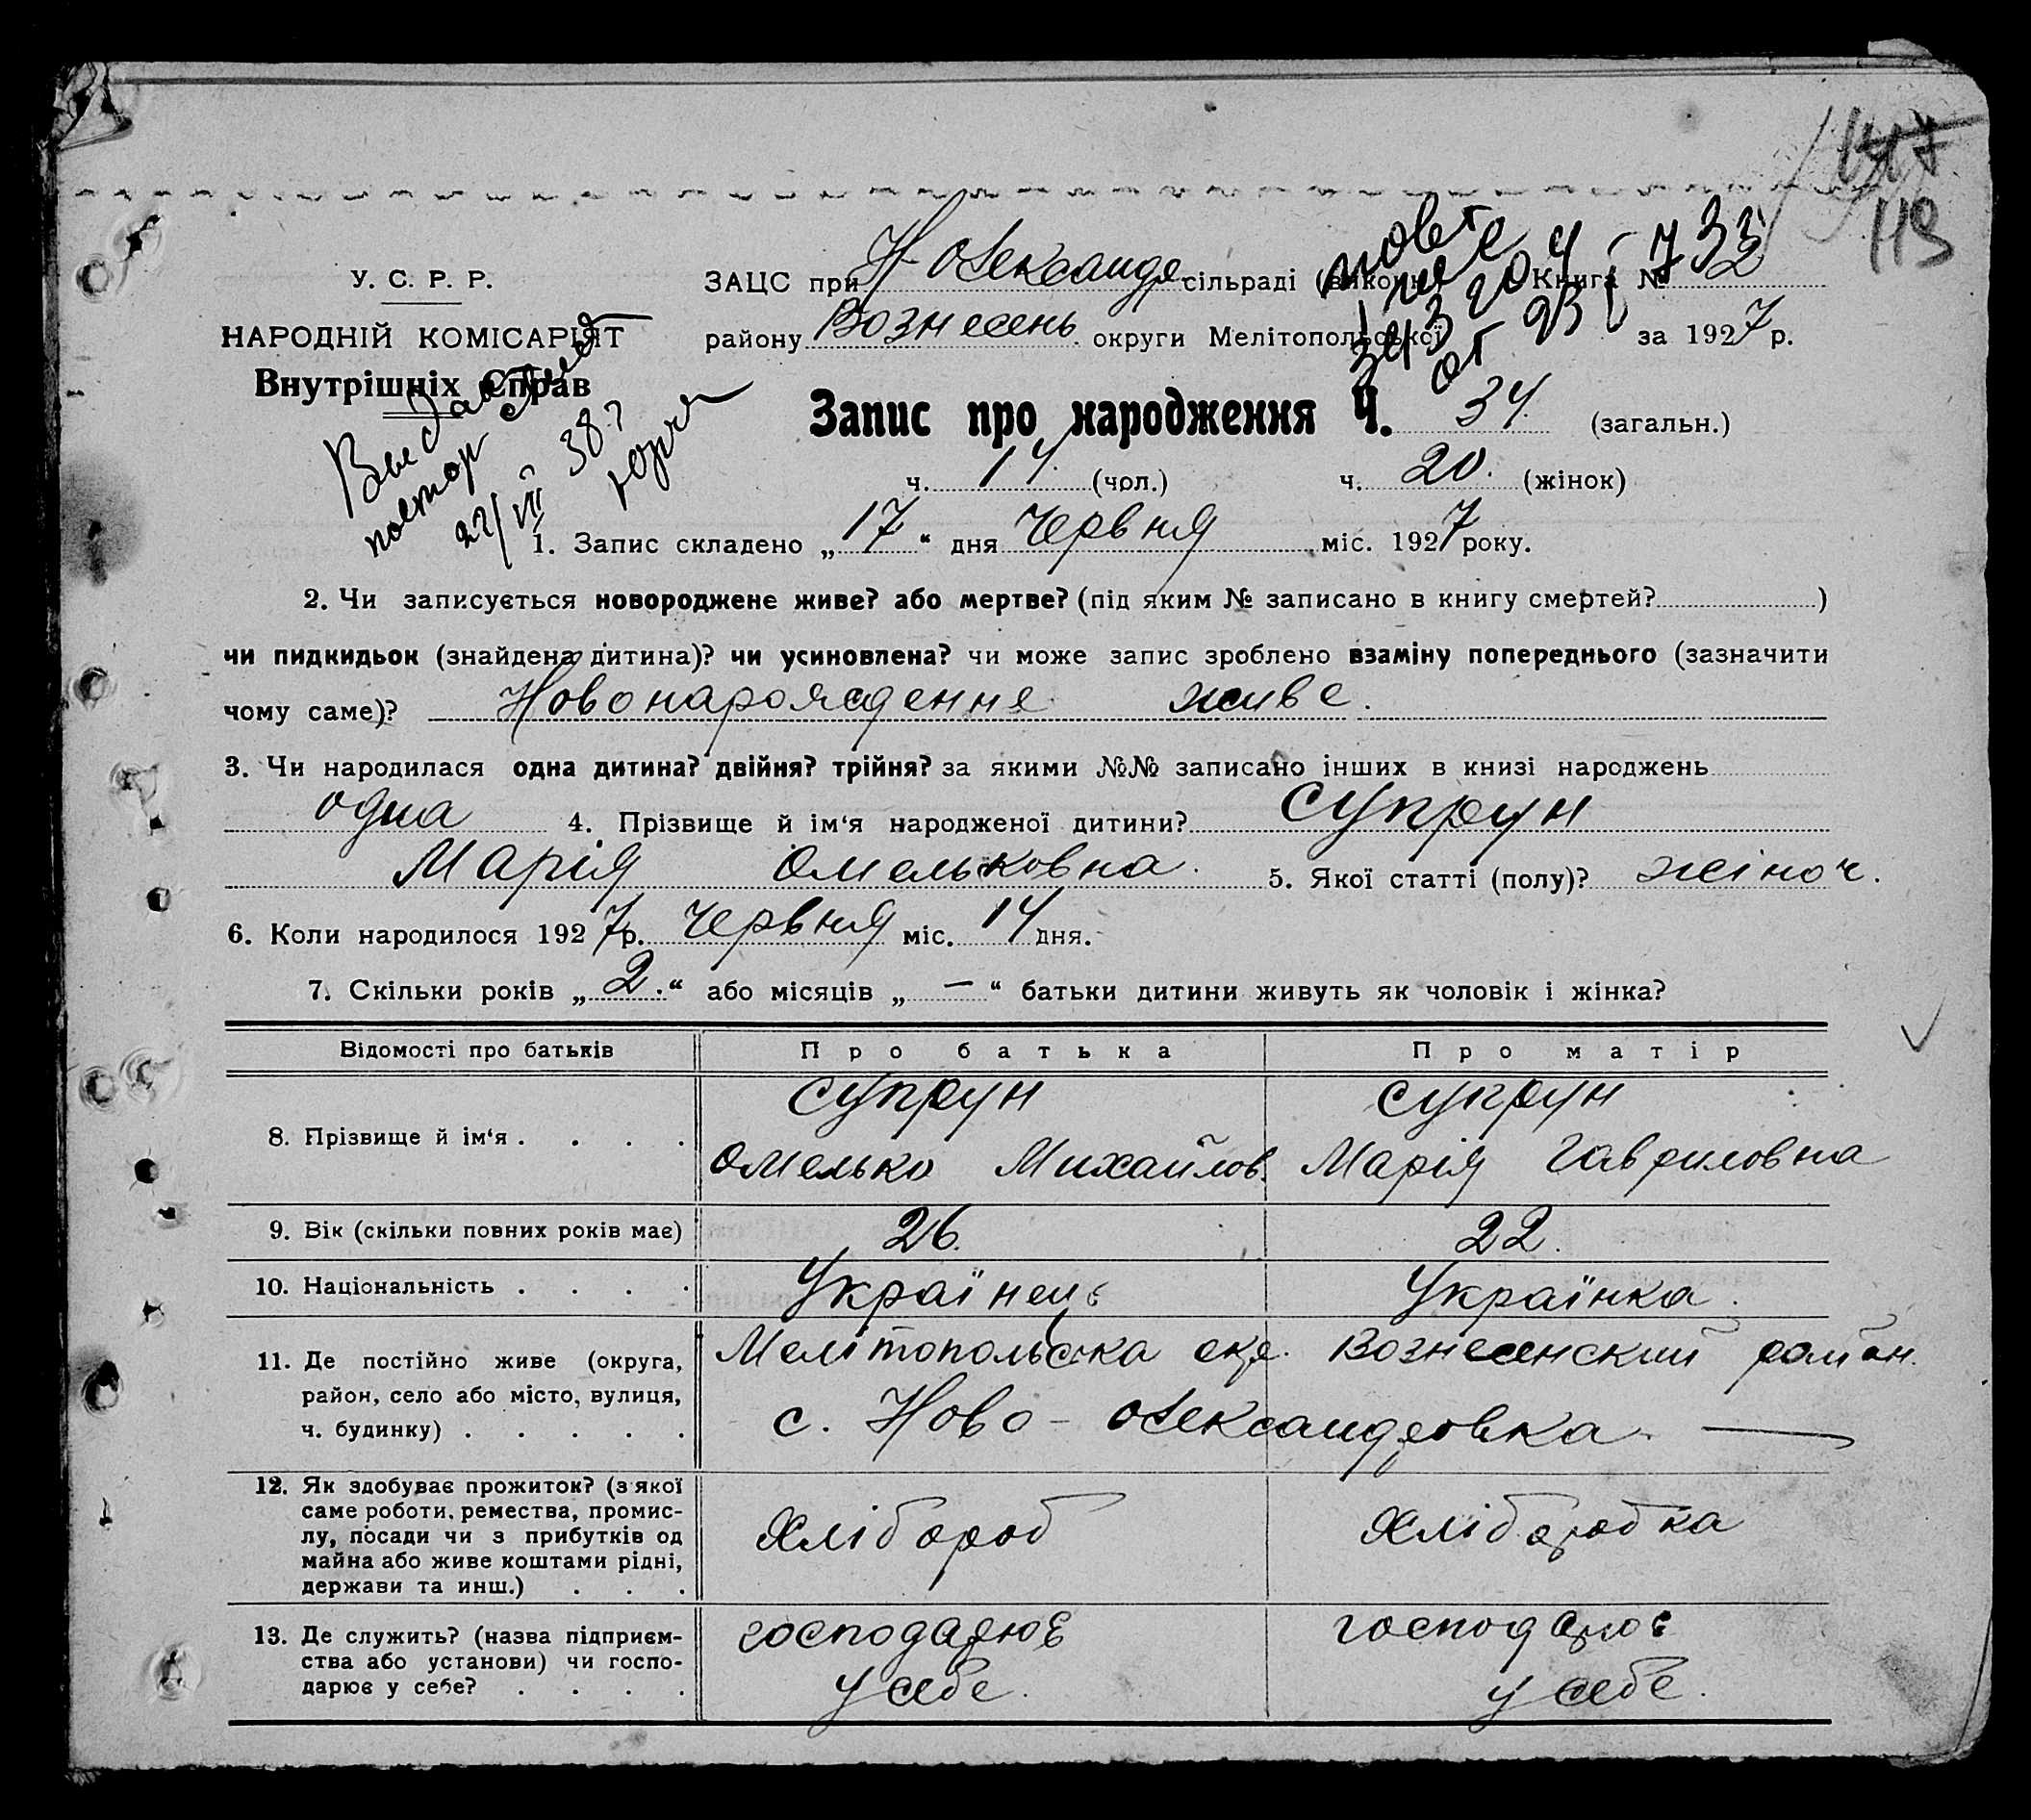 117
119
У. С. Р. Р.
НАРОДНІЙ КОМІСАРІЯТ
Внутрішніх Справ
ЗАЦС при Н Олександр сільраді Книга № 733
району Вознесень. округи Мелітопольської за 1927 р.
Запис про народження Ч. 34. (загальн.)
ч. 14. (чол.) ч. 20. (жінок)
22/VII 38 г
1. Запис складено „17“ дня Червня міс. 1927 року.
2. Чи записується новороджене живе? або мертве? (під яким № записано в книгу смертей? )
чи пидкидьок (знайдена дитина)? чи усиновлена? чи може запис зроблено взаміну попереднього (зазначити
чому саме)? Новонарождення живе.
3. Чи народилася одна дитина? двійня? трійня? за якими №№ записано інших в книзі народжень
одна 4. Прізвище й ім‘я народженої дитини? Супрун
Марія Омельковна. 5. Якої статті (полу)? жіноч.
6. Коли народилося 1927 р. Червня міс. 14 дня.
7. Скільки років „2.“ або місяців „—“ батьки дитини живуть як чоловік і жінка?
Відомості про батьків Про батька Про матір
8. Прізвище й ім‘я . . . . Супрун Супрун
Омелько Михайлов. Марія Гавриловна
9. Вік (скільки повних років має) 26. 22.
10. Національність . . . . Українець Українка.
11. Де постійно живе (округа,
район, село або місто, вулиця,
ч. будинку) . . . . .
Мелітопольська окр. Вознесенский район.
с. Ново-Олександровка. —
12. Як здобуває прожиток? (з якої
саме роботи, ремества, промис-
лу, посади чи з прибутків од
майна або живе коштами рідні,
держави та инш.) . . .
Хлібороб Хліборобка
13. Де служить? (назва підприєм-
ства або установи) чи госпо-
дарює у себе? . . . .
господарює господарює
у себе. у себе.